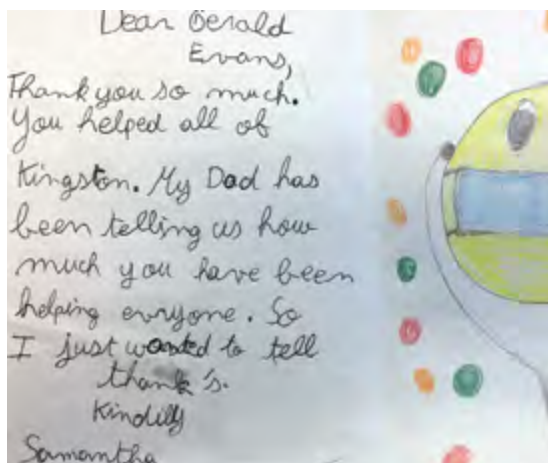 Dear Gerald
Evans,
Thank you so much.
You helped all of
Kingston. My Dad has
been telling us how
much you have been
helping evryone. So
I just wanted to tell
thank's.
Kindilly
Samantha